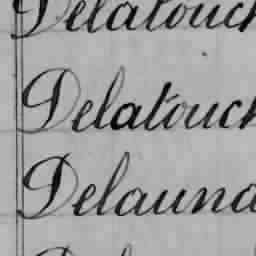 Delatouch
Delatouch
Delauna